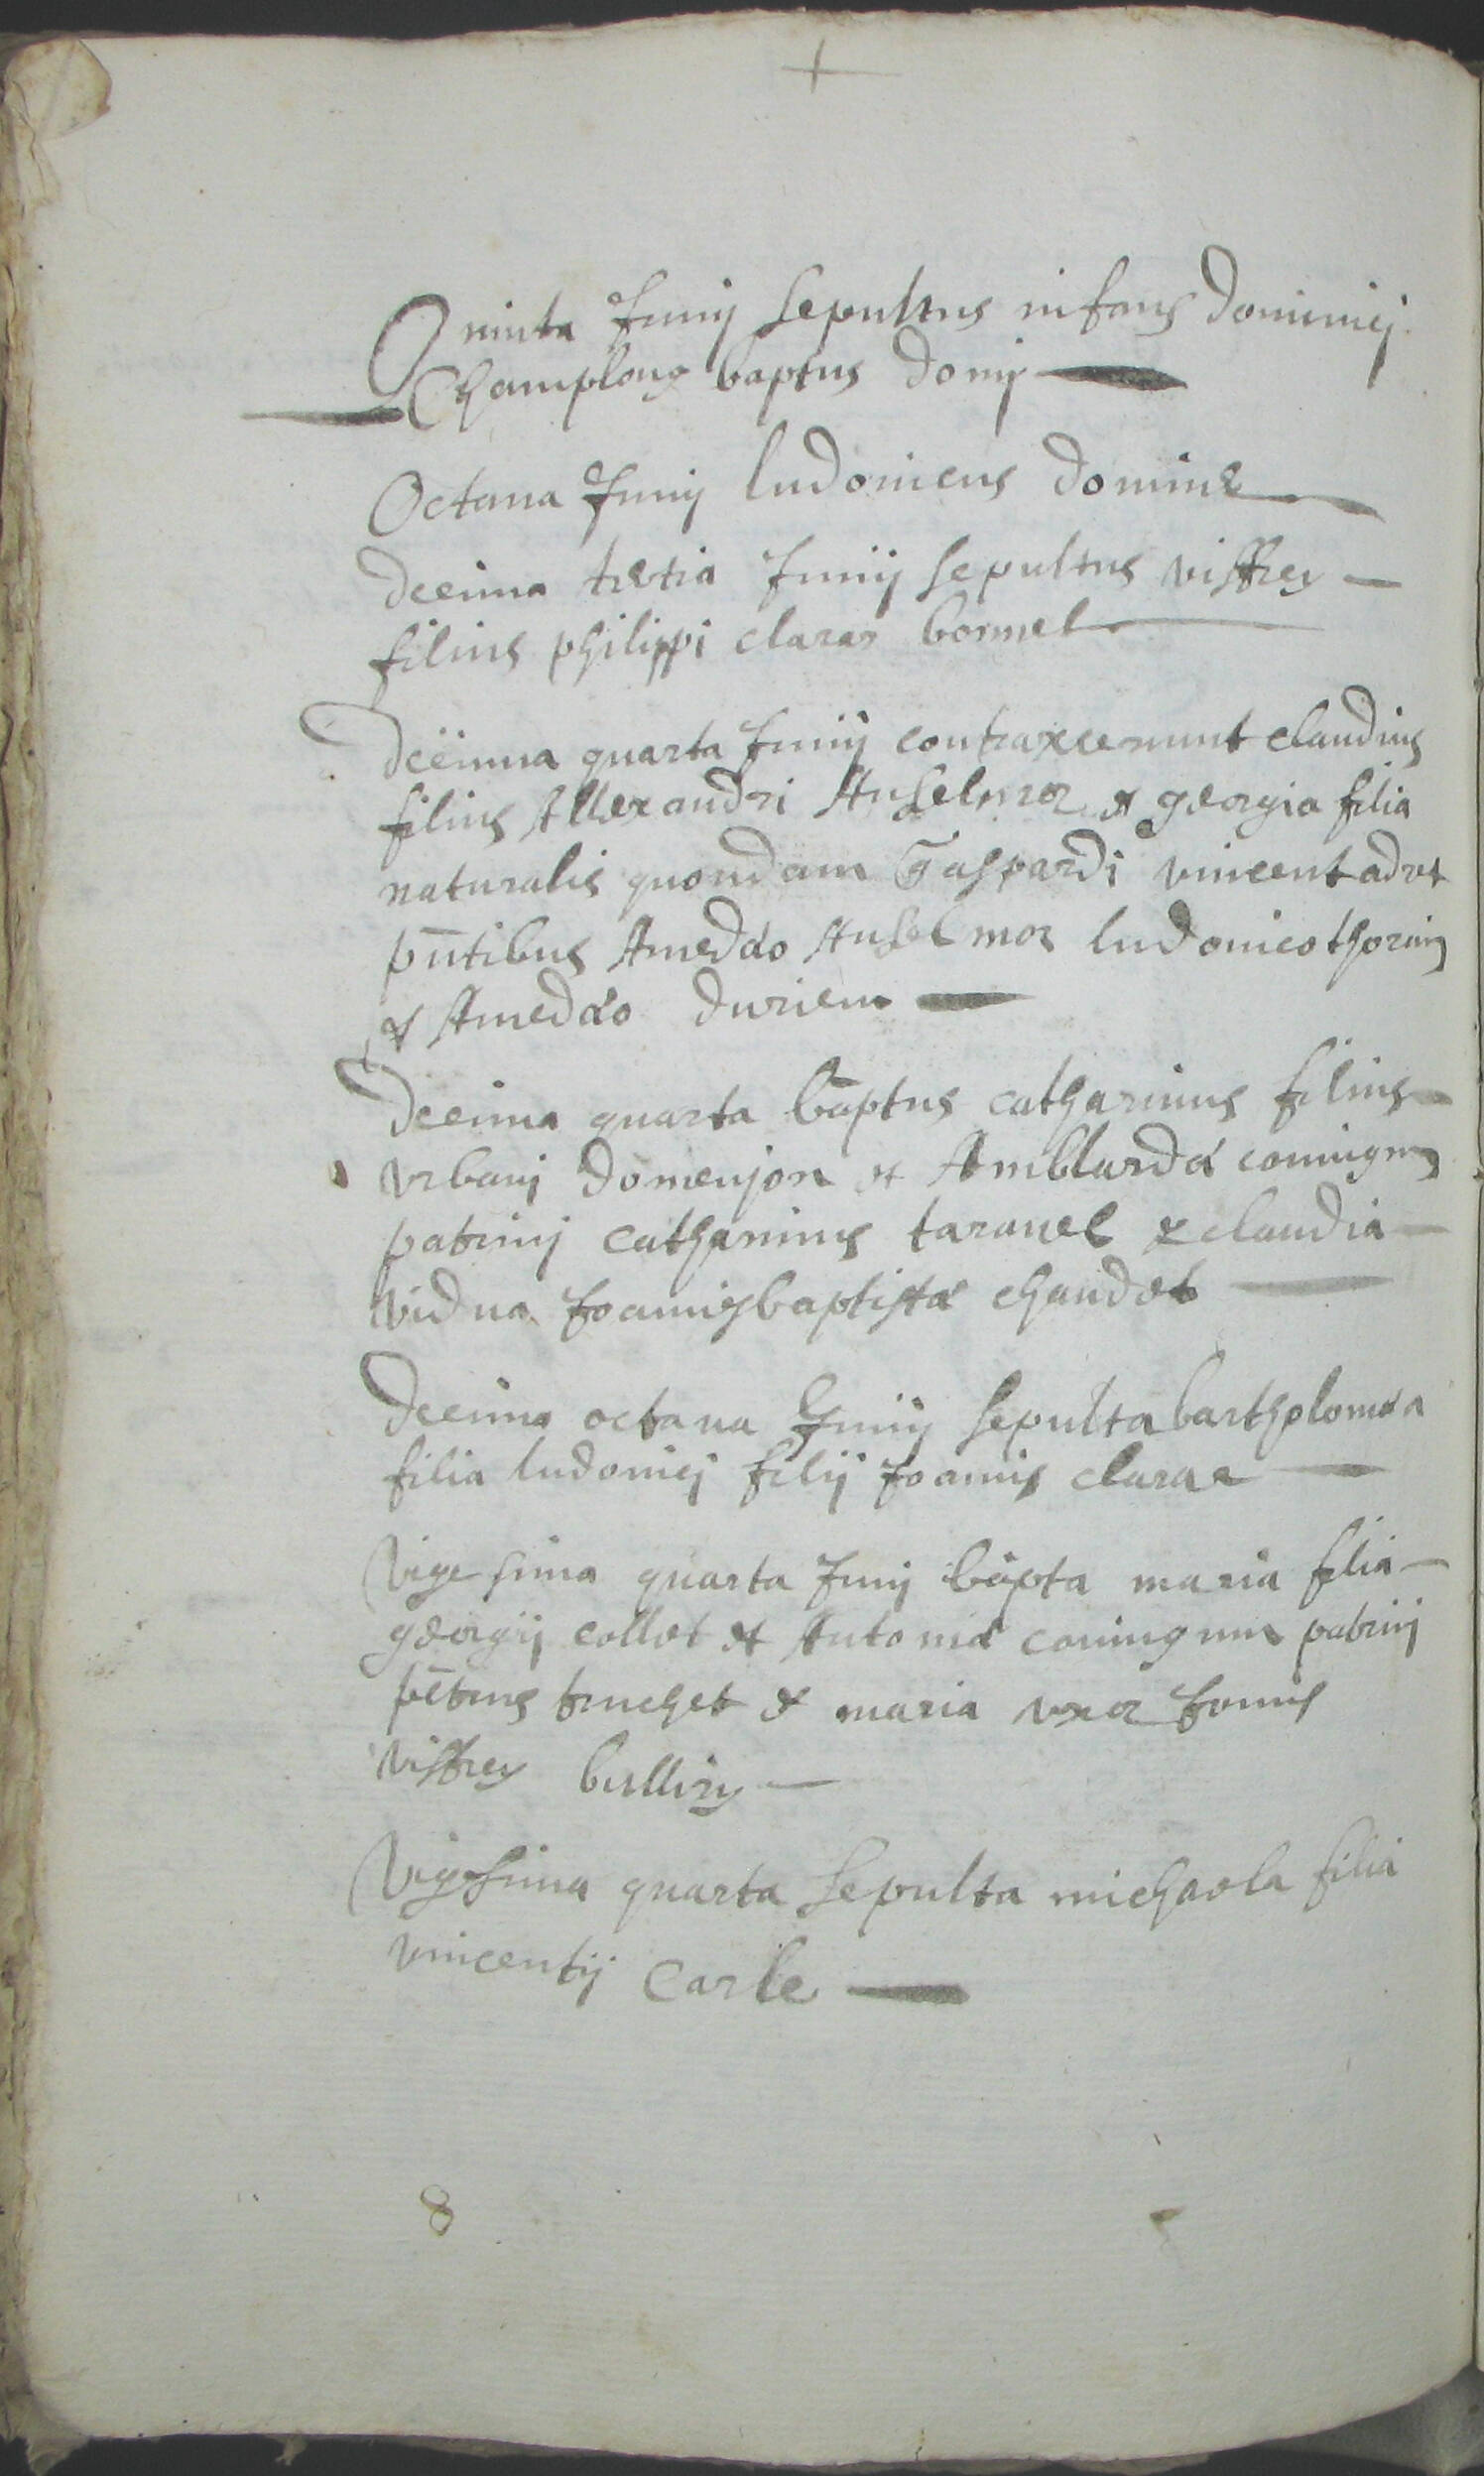 Quinta Junij sepultus infans dominicj
Champlong baptus domj
Octaua Junij ludouicus domine
Decima tertia Junij sepultus viffrey
filius philippi claraz bonnel
Decima quarta Junij contraxerunt claudius
filius Allexandri Anselmoz et georgia filia
naturalis quondam Gaspardi vincent adret
pñtibus Amedæo Anselmoz ludouico thorin
& Amedæo durieu
Decima quarta bāptus catharinus filius
vrbanj domenjon et Amblardæ coniugum
patrinj catharinus tarauel & claudia
vidua Joannisbaptistæ chaudet
Decima octaua Junij sepulta bartholomæa
filia ludouicj filij Joannis claraz
Vigesima quarta Junij bāpta maria filia
georgij collet et Antoniæ coniugum patrinj
pētrus truchet & maria vxor Joannis
viffrey
Vigesima quarta sepulta michaela filia
vincentij Carle
8